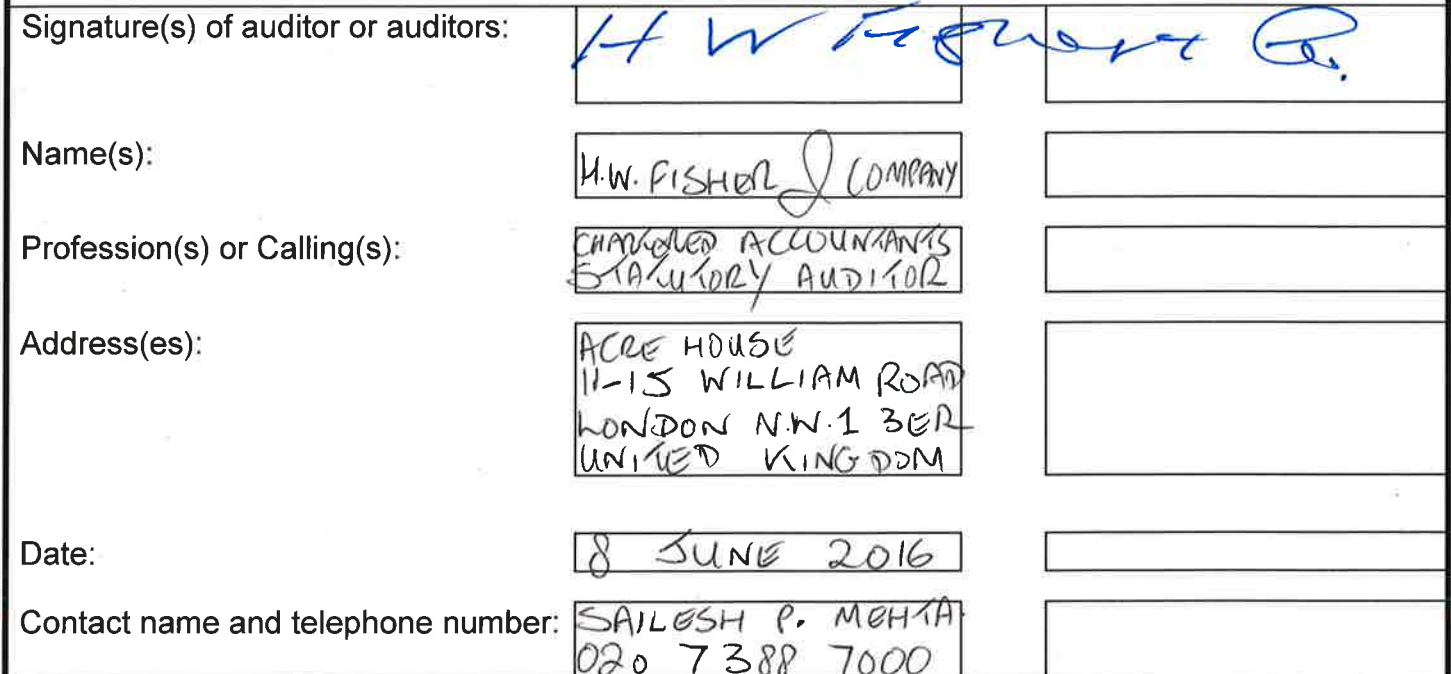 Signature(s) of auditor or auditors: H W Fisher & Co.
Name(s): H.W. FISHER & COMPANY
Profession(s) or Calling(s): CHARTERED ACCOUNTANTS
STATUTORY AUDITOR
Address(es): ACRE HOUSE
11-15 WILLIAM ROAD
LONDON N.W.1 3ER
UNITED KINGDOM
Date: 8 JUNE 2016
Contact name and telephone number: SAILESH P. MEHTA
020 7388 7000